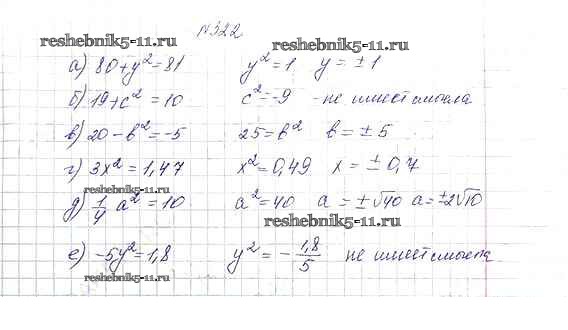 №322
reshebnik5-11.ru reshebnik5-11.ru
а) 80+y²=81 y²=1 y=±1
б) 19+c²=10 c²=-9 -не имеет смысла
в) 20-b²=-5 25=b² b=±5
г) 3x²=1,47 x²=0,49 x=±0,7
reshebnik5-11.ru
д) 1/4 a²=10 a²=40 a=±√40 a=±2√10
reshebnik5-11.ru
е) -5y²=1,8 y²=-1,8/5 не имеет смысла
reshebnik5-11.ru